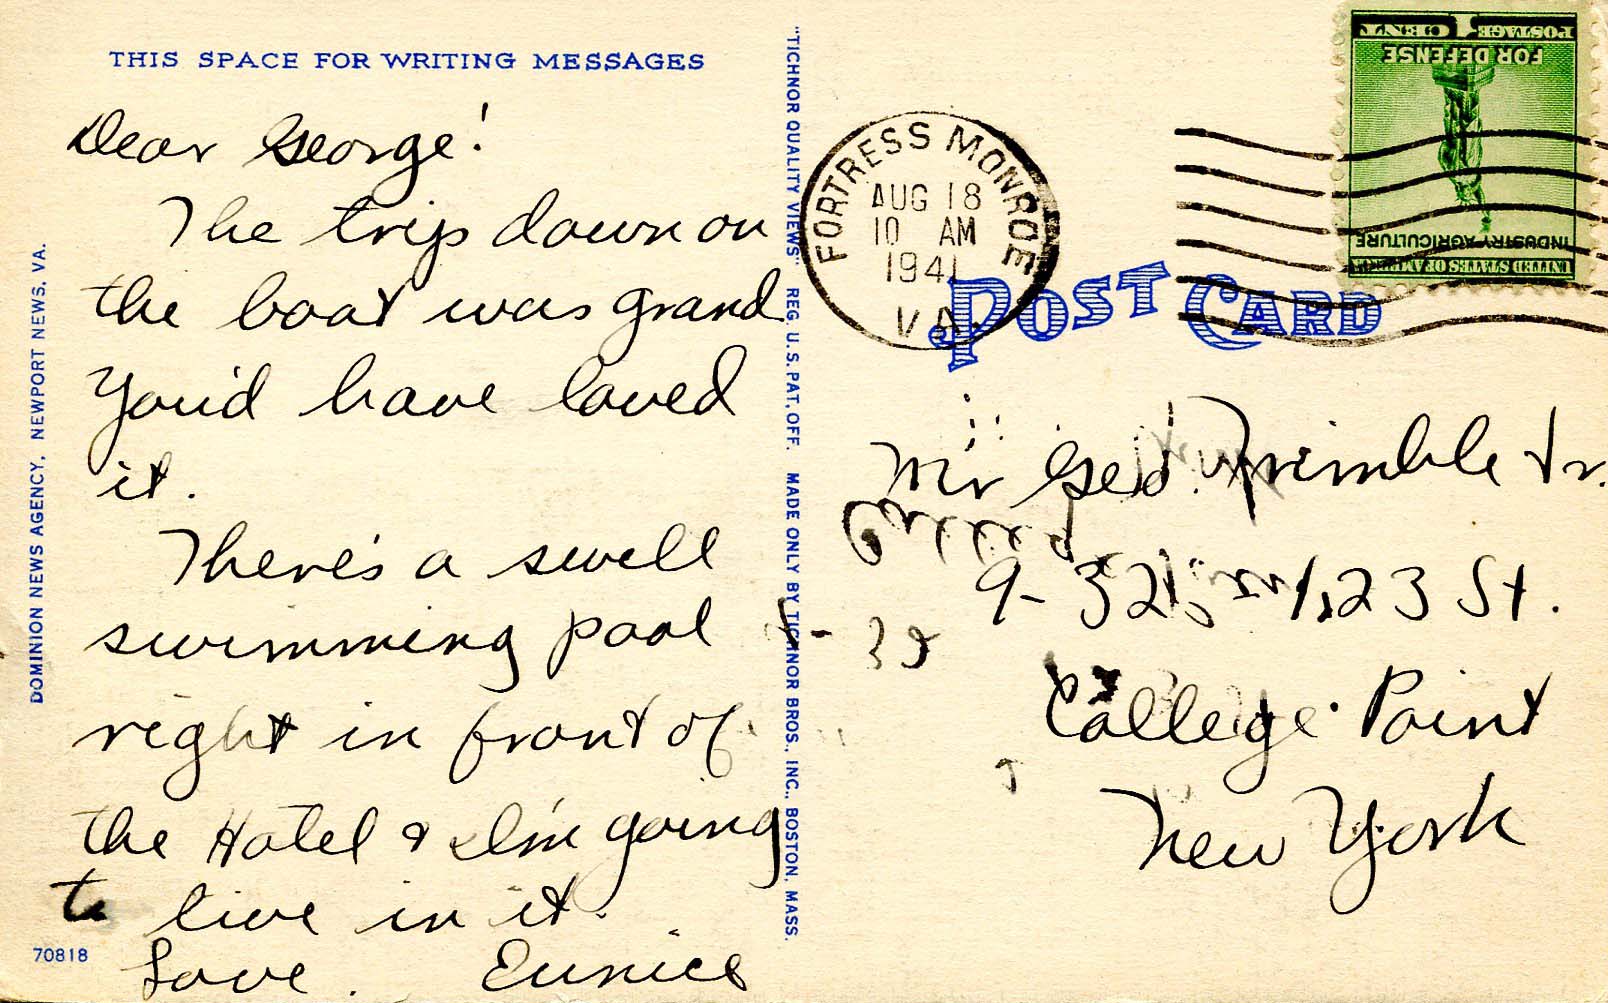 THIS SPACE FOR WRITING MESSAGES
Dear George!
The trip down on
the boat was grand.
You'd have loved
it.
There's a swell
swimming pool
right in front of
the Hotel & I'm going
to live in it.
Love. Eunice
70818
DOMINION NEWS AGENCY, NEWPORT NEWS, VA.
"TICHNOR QUALITY VIEWS" REG. U.S. PAT. OFF. MADE ONLY BY TICHNOR BROS., INC., BOSTON, MASS.
FORTRESS MONROE
AUG 18
10 AM
1941
VA.
UNITED STATES OF AMERICA
INDUSTRY AGRICULTURE
FOR DEFENSE
1 CENT POSTAGE
POST CARD
Mr Geo. Trimble Jr.
9-32 123 St.
College Point
New York